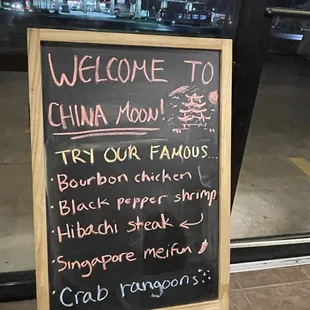 WELCOME TO
CHINA MOON!
TRY OUR FAMOUS...
· Bourbon chicken
· Black pepper shrimp
· Hibachi steak
· Singapore meifun
· Crab rangoons